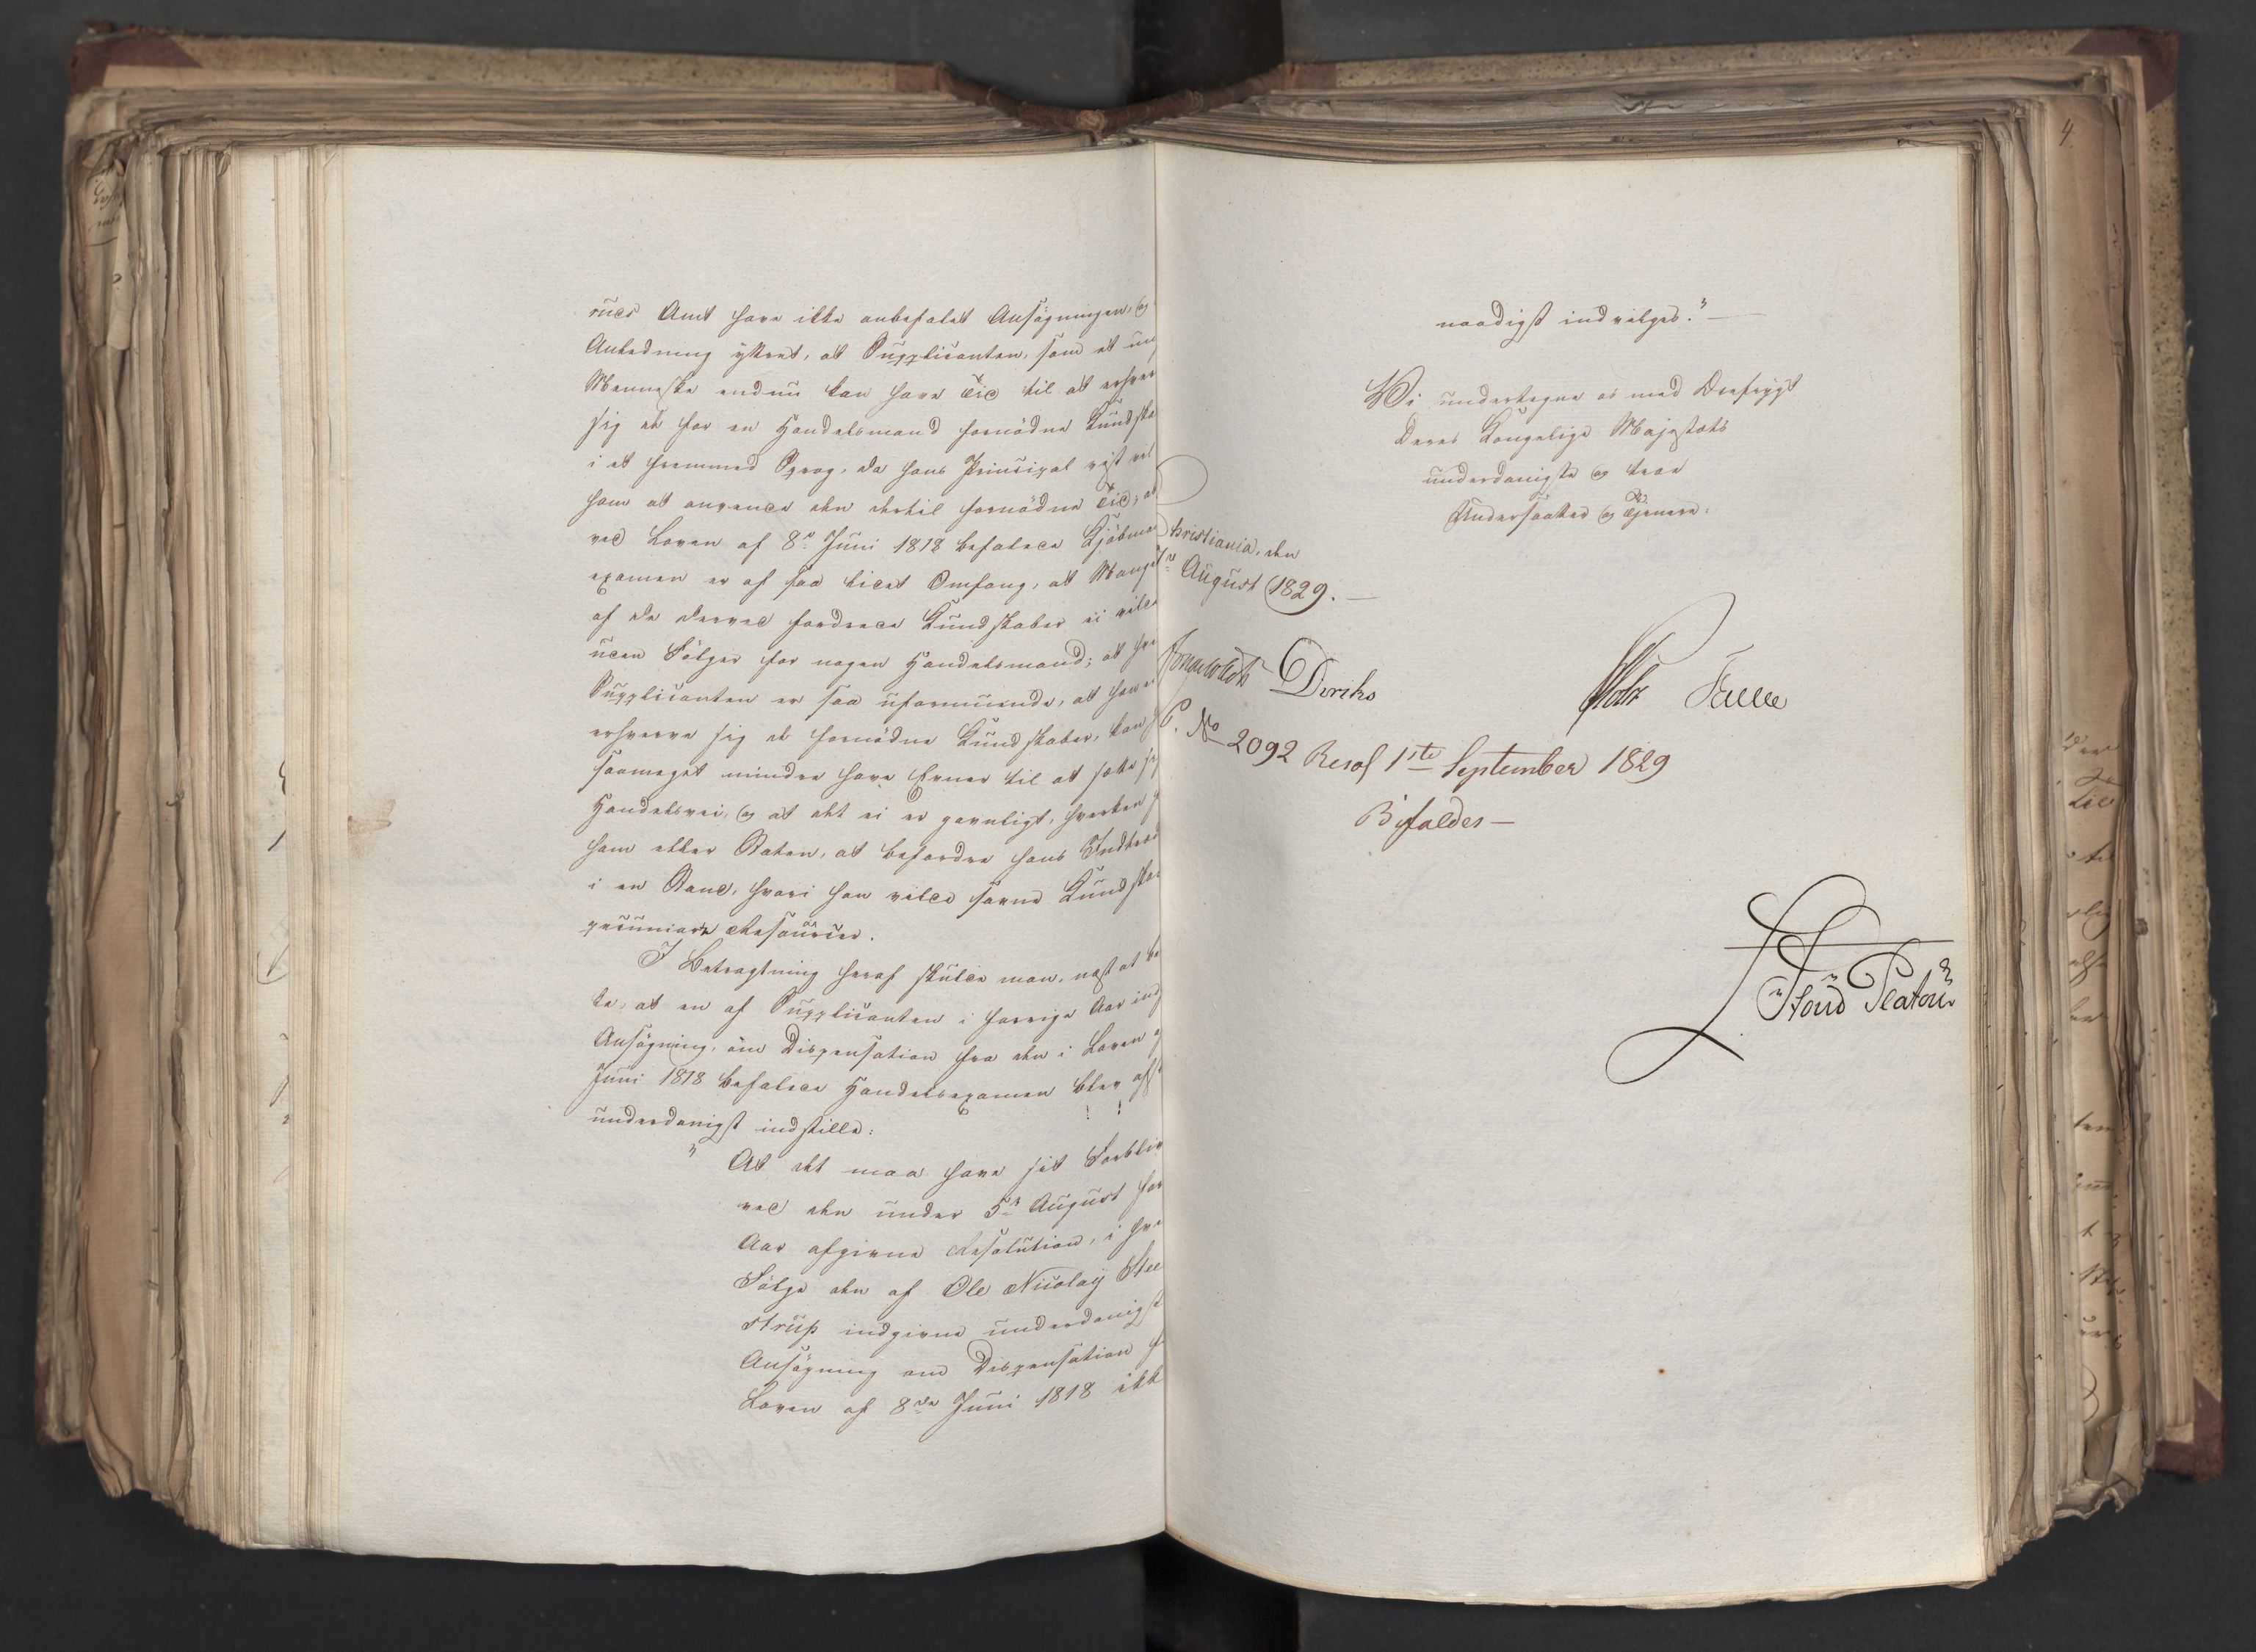 ruds Amt have ikke anbefalet Ansögningen, og
Anledning yttret, at Supplicanten, som et un
Menneske endnu kan have Tid til at erhver
sig de for en Handelsmand fornödne Kundska
i et fremmed Sprog, da hans Principal vist vil
ham at anvende den dertil fornödne Tid, at
ved Loven af 8de Juni 1818 befalede Kjöbma
examen er af saa lidet Omfang, at Mangel
af de derved fordrede Kundskaber ei vilde
uden Fölger for nogen Handelsmand; at hvi
Supplicanten er saa uformuende, at han ei
erhverve sig de fornödne Kundskaber, kan h
saameget mindre have Evner til at sætte sig
Handelsvei, og at det ei er gavnligt, hverken f
ham eller Staten, at befordre hans Indtræd
i en Stand, hvori han vilde savne Kundska
pecuniære Resourcer.
I Betragtning heraf skulde man, næst at be
ke, at en af Supplicanten i forrige Aar ind
Ansögning, om Dispensation fra den i Loven
Juni 1818 befalede Handelsexamen blev afs
underdanigst indstille:
" At det maa have sit Forbliv
ved den under 5te August for
Aar afgivne Resolution, i hvi
Fölge den af Ole Nicolay Stee
strup indgivne underdanigst
Ansögning om Dispensation f
Loven af 8de Juni 1818 ikk
naadigst indvilges." —
Vi undertegne os med Dyefrygt
Deres Kongelige Majestæts
underdanigste og troe
Undersaatter og Tjenere.
Christiania, den
August 1829. —
Diriks
Holst Falbe
No 2092 Resol 1ste September 1829
Bifaldes —
Staud Platou